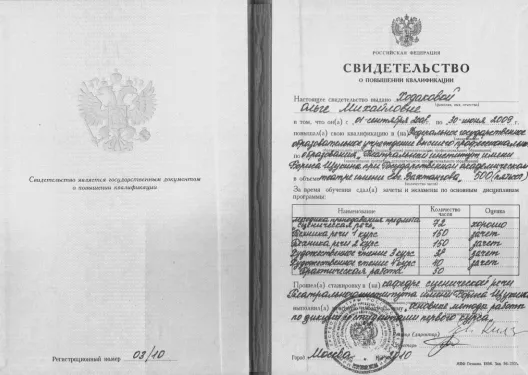 Свидетельство является государственным документом
о повышении квалификации
Регистрационный номер 03/10
РОССИЙСКАЯ ФЕДЕРАЦИЯ
СВИДЕТЕЛЬСТВО
О ПОВЫШЕНИИ КВАЛИФИКАЦИИ
Настоящее свидетельство выдано Ходаковой
Ольге Михайловне
в том, что он(а) с 01 сентября 2008. по 30 июня 2009г.
повысил(а) свою квалификацию в (на) Федеральное государственное
образовательное учреждении высшего профессионального
по образования „Театральный институт имени
Бориса Щукина при Государственном академическом
в объеме театре имени Евг. Вахтангова. 500 (пятьсот)
За время обучения сдал(а) зачеты и экзамены по основным дисциплинам
программы:
Наименование Количество часов Оценка
методика преподавания предмета
„Сценическая речь" 72 хорошо
Техника речи 1 курс 150 зачет
Техника речи 2 курс 150 зачет
Художественное чтение 3 курс 38 зачет
Художественное чтение 4 курс 40 зачет
Практическая работа 50
Прошел(а) стажировку в (на) кафедре сценической речи
Театрального института имени Бориса Щукина
выполнил(а) основные методы работы
по дикции со студентами первого курса.
Секретарь
Город Москва 10